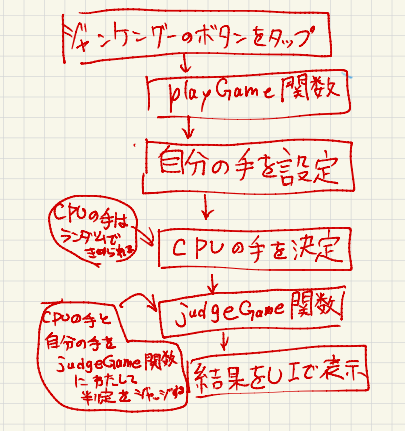 ジャンケングーのボタンをタップ
playGame関数
自分の手を設定
CPUの手は
ランダムで
きめられる
CPUの手を決定
judgeGame関数
CPUの手と
自分の手を
judgeGame関数
にわたして
判定をジャッジする
結果をUIで表示